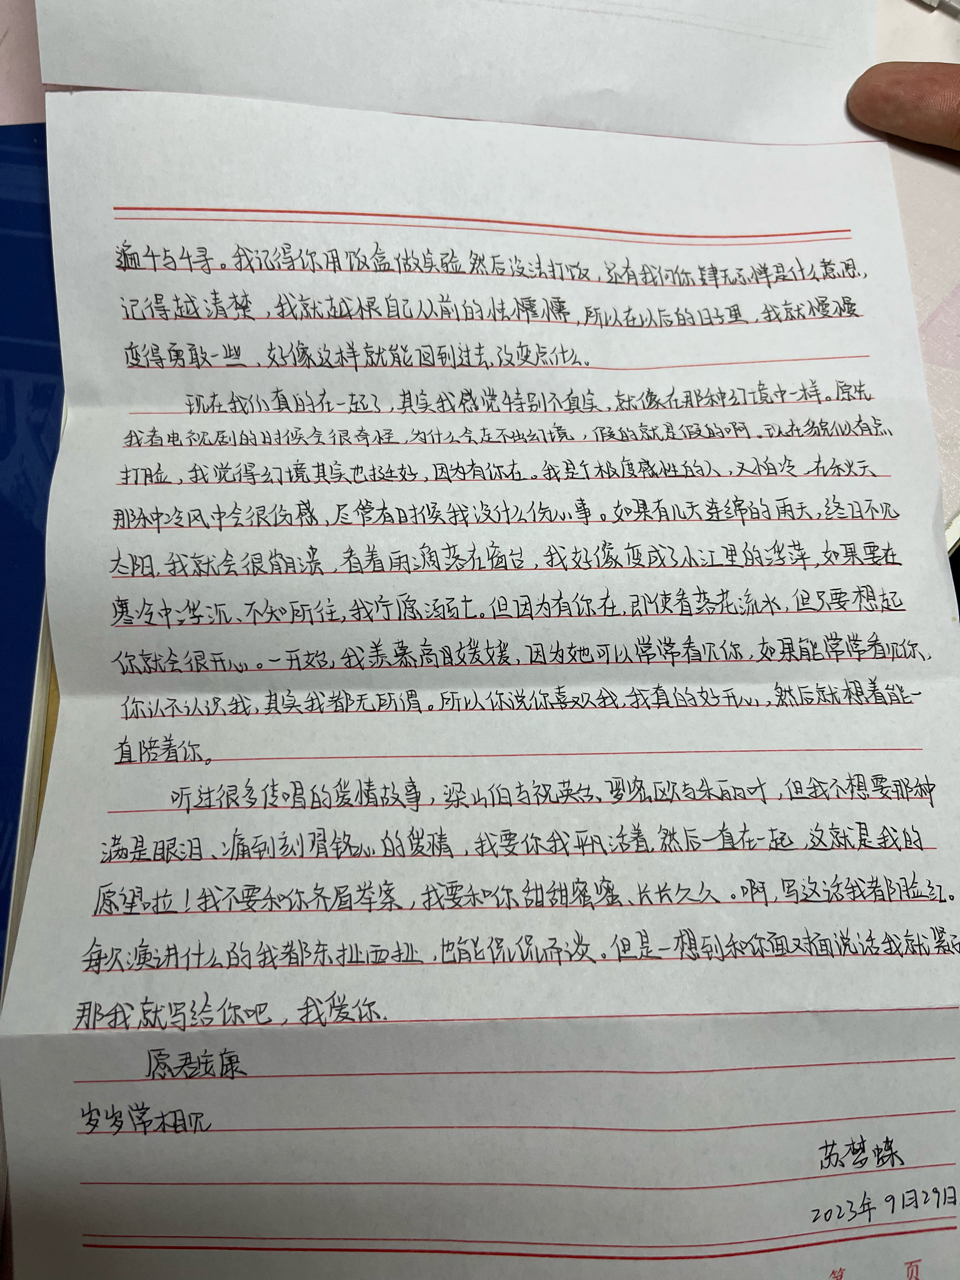 遍4与4寻。我记得你用饭盒做实验然后没法打饭，还有我问你肆无忌惮是什么意思，
记得越清楚，我就越恨自己从前的怯懦，所以在以后的日子里，我就慢慢
变得勇敢一些，好像这样就能回到过去，改变点什么。
现在我们真的在一起了，其实我感觉特别不真实，就像在那种幻境中一样。原先
我看电视剧的时候会很奇怪，为什么会走不出幻境，假的就是假的啊。现在貌似有点
打脸，我觉得幻境其实也挺好，因为有你在。我是个极度感性的人，又怕冷，在秋天
那种冷风中会很伤感，尽管有时候我没什么伤心事。如果有几天连绵的雨天，终日不见
太阳，我就会很崩溃，看着雨滴落在窗台，我好像变成了小江里的浮萍，如果要在
寒冷中浮沉、不知所往，我宁愿溺亡。但因为有你在，即使看落花流水，但只要想起
你就会很开心。一开始，我羡慕高月媛媛，因为她可以常常看见你，如果能常常看见你，
你认不认识我，其实我都无所谓。所以你说你喜欢我，我真的好开心，然后就想着能一
直陪着你。
听过很多传唱的爱情故事，梁山伯与祝英台、罗密欧与朱丽叶，但我不想要那种
满是眼泪、痛到刻骨铭心的爱情，我要你我平凡活着，然后一直在一起，这就是我的
愿望啦！我不要和你齐眉举案，我要和你甜甜蜜蜜、长长久久。啊，写这话我都脸红。
每次演讲什么的我都东扯西扯，也能侃侃而谈。但是一想到和你面对面说话我就紧
那我就写给你吧，我爱你.
愿君安康
岁岁常相见
苏梦蝶
2023年9月29日
第 页